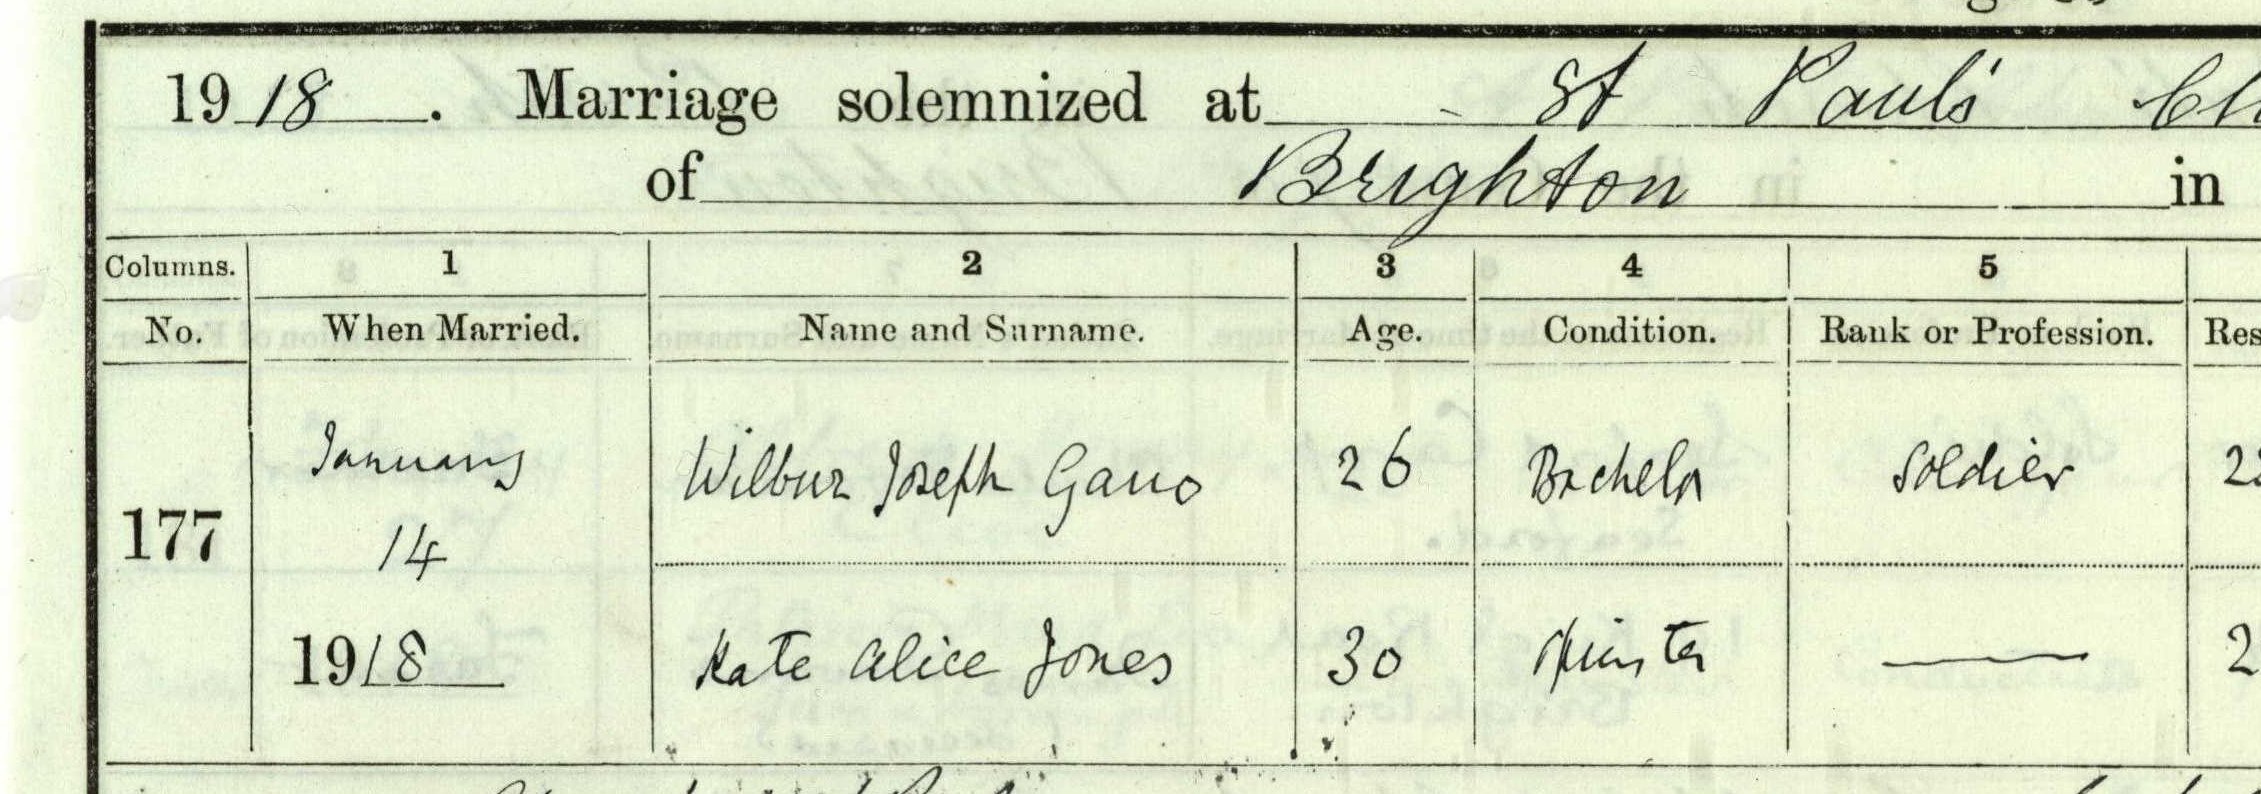 1918. Marriage solemnized at St Paul's
of Brighton in
Columns. 1 2 3 4 5
No. When Married. Name and Surname. Age. Condition. Rank or Profession. Res
177 January 14 1918
Wilbur Joseph Gano 26 Bachelor Soldier 22
Kate Alice Jones 30 Spinster — 2